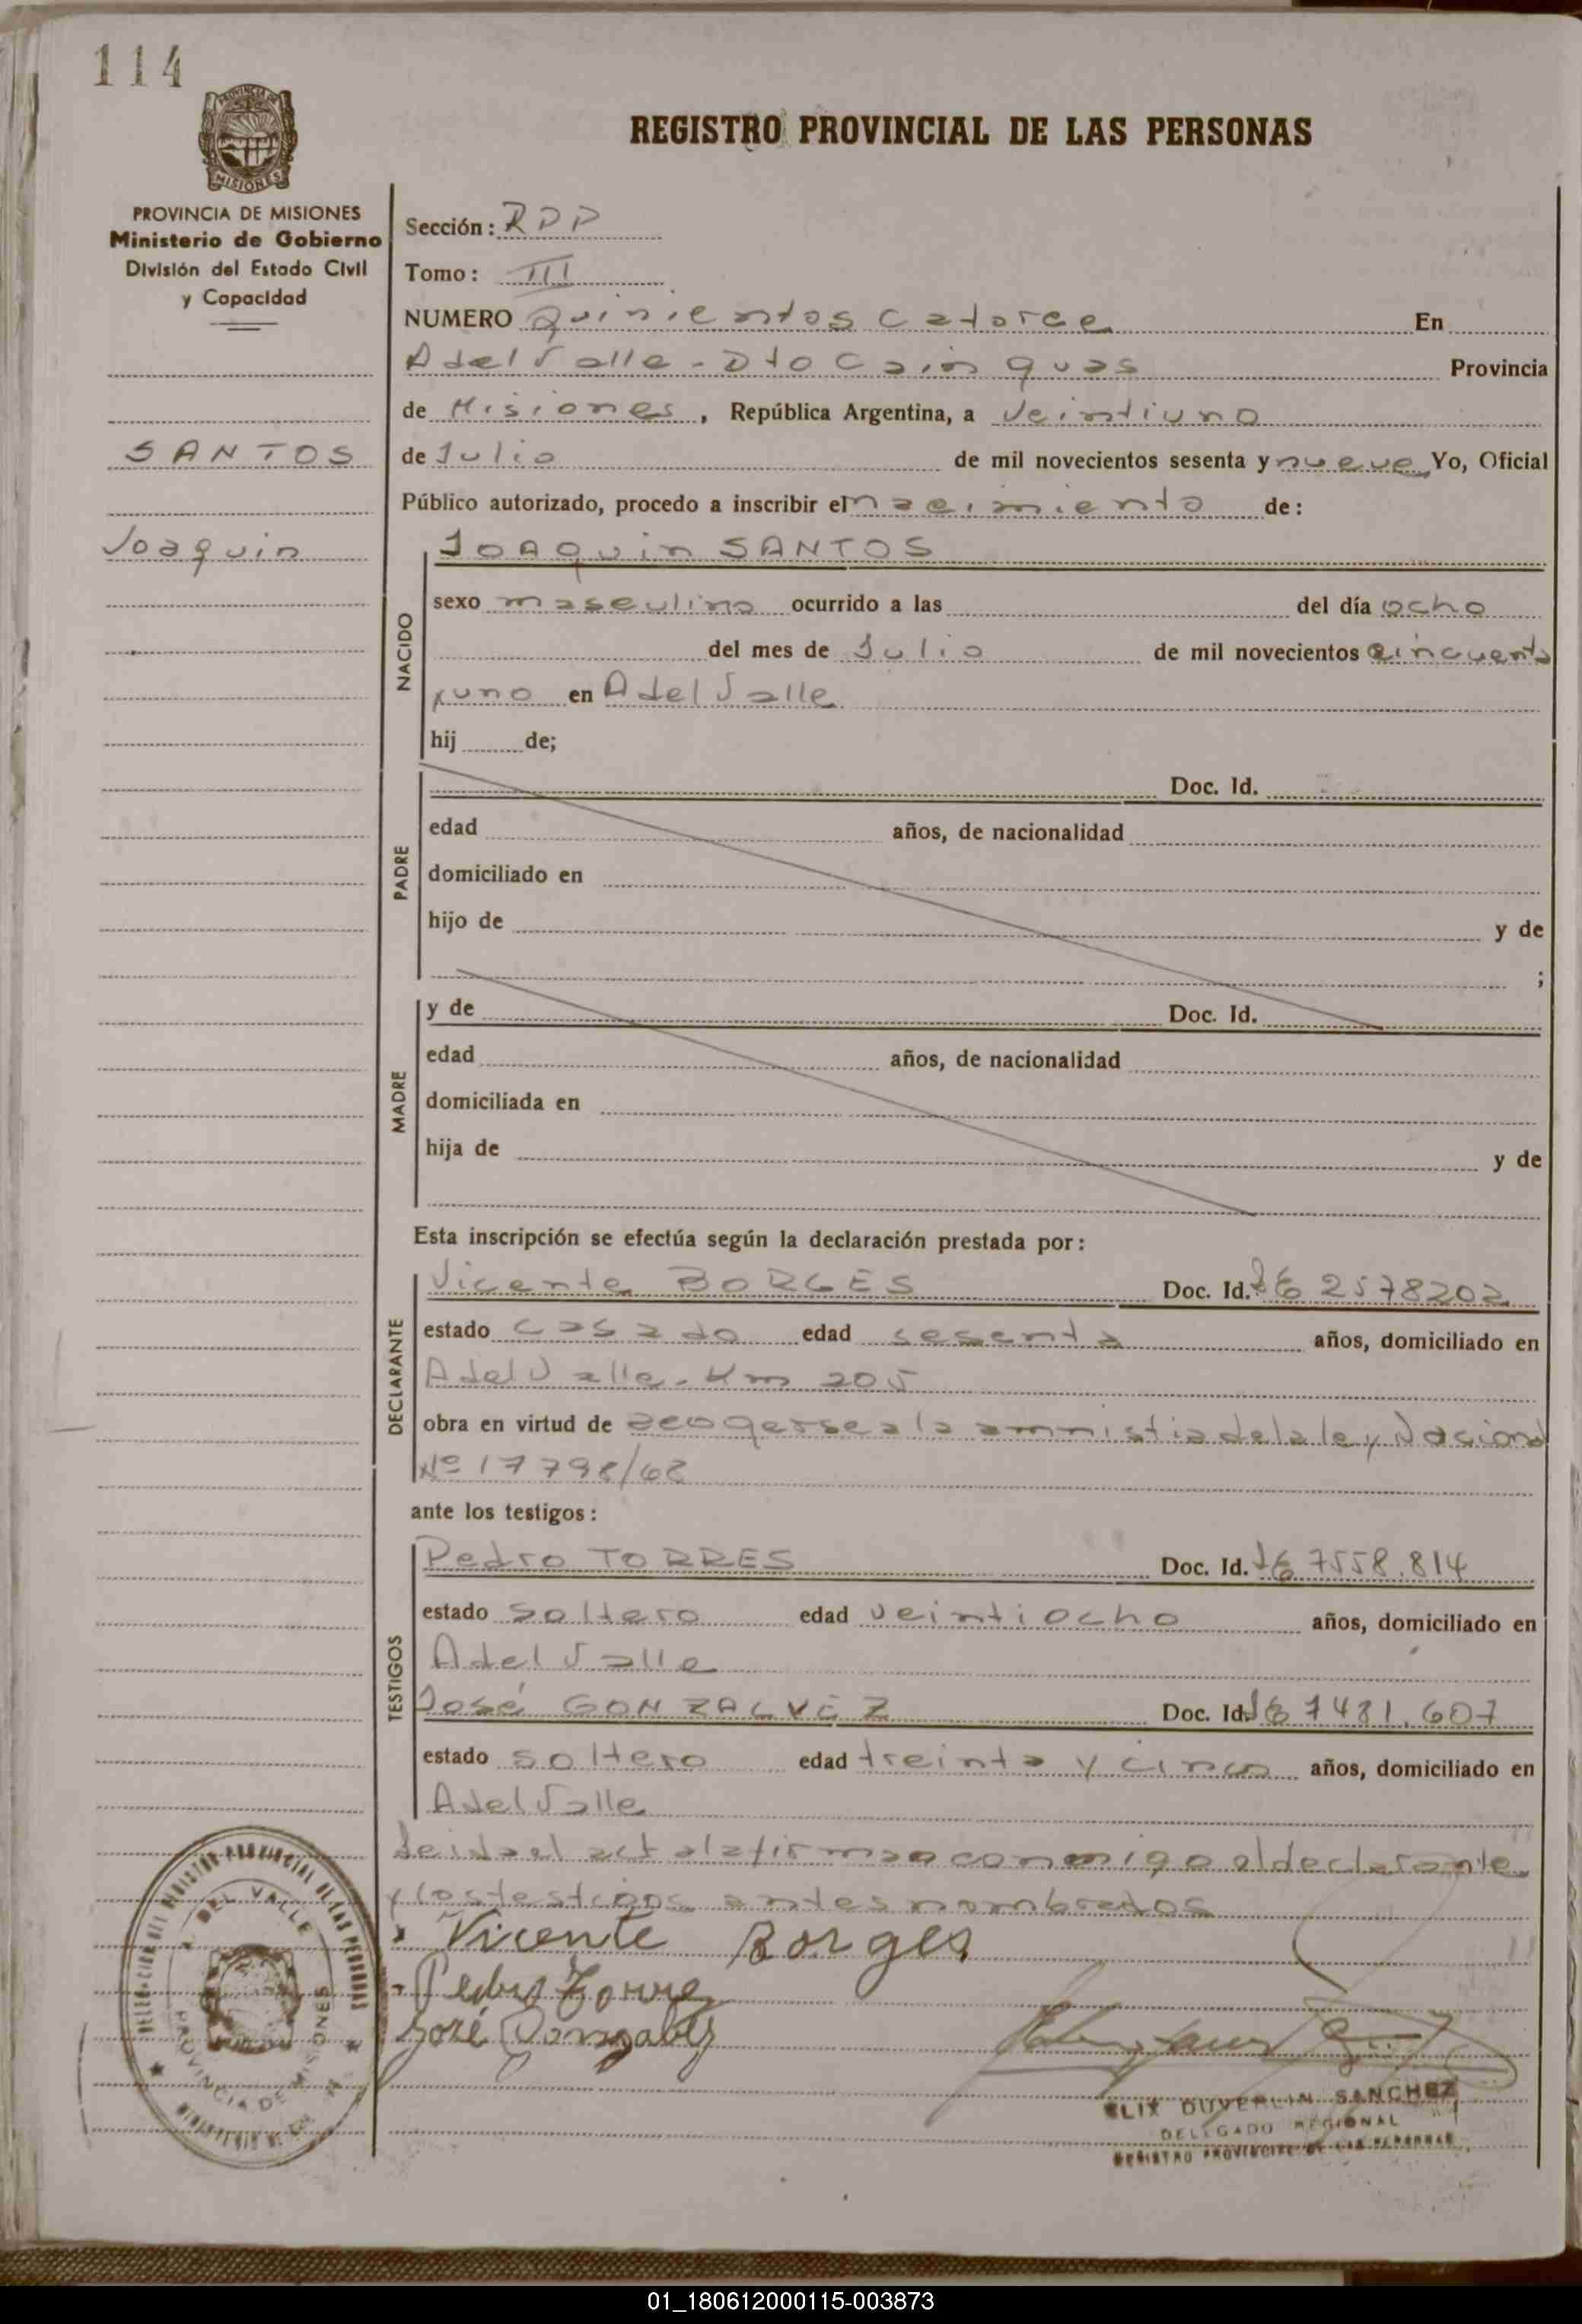 114
PROVINCIA DE
MISIONES
REGISTRO PROVINCIAL DE LAS PERSONAS
PROVINCIA DE MISIONES
Ministerio de Gobierno
División del Estado Civil
y Capacidad
SANTOS
Joaquin
Sección: RPP
Tomo: III
NUMERO Quinientos catorce En
A del Valle - Dto Cainguas Provincia
de Misiones, República Argentina, a Veintiuno
de Julio de mil novecientos sesenta y nueve Yo, Oficial
Público autorizado, procedo a inscribir el nacimiento de:
NACIDO
JOAquin SANTOS
sexo masculino ocurrido a las del día ocho
del mes de Julio de mil novecientos cincuenta
y uno en A del Valle
hij de;
PADRE
Doc. Id.
edad años, de nacionalidad
domiciliado en
hijo de y de
;
MADRE
y de Doc. Id.
edad años, de nacionalidad
domiciliada en
hija de y de
Esta inscripción se efectúa según la declaración prestada por:
DECLARANTE
Vicente BORGES Doc. Id. 2578202
estado casado edad sesenta años, domiciliado en
A del Valle - Km 205
obra en virtud de acogerse a la amnistia de la ley Nacional
Nº 17798/68
ante los testigos:
TESTIGOS
Pedro TORRES Doc. Id. 7558.814
estado soltero edad veintiocho años, domiciliado en
A del Valle
José GONZALVEZ Doc. Id. 7481.607
estado soltero edad treinta y cinco años, domiciliado en
A del Valle
Leida el acta la firman conmigo el declarante
y los testigos antes nombrados
Vicente Borges
Pedro Torres
José Gonzalvez
DEL VALLE
PROVINCIA DE MISIONES
SANCHEZ
DELEGADO REGIONAL
REGISTRO PROVINCIAL DE LAS PERSONAS
01_180612000115-003873